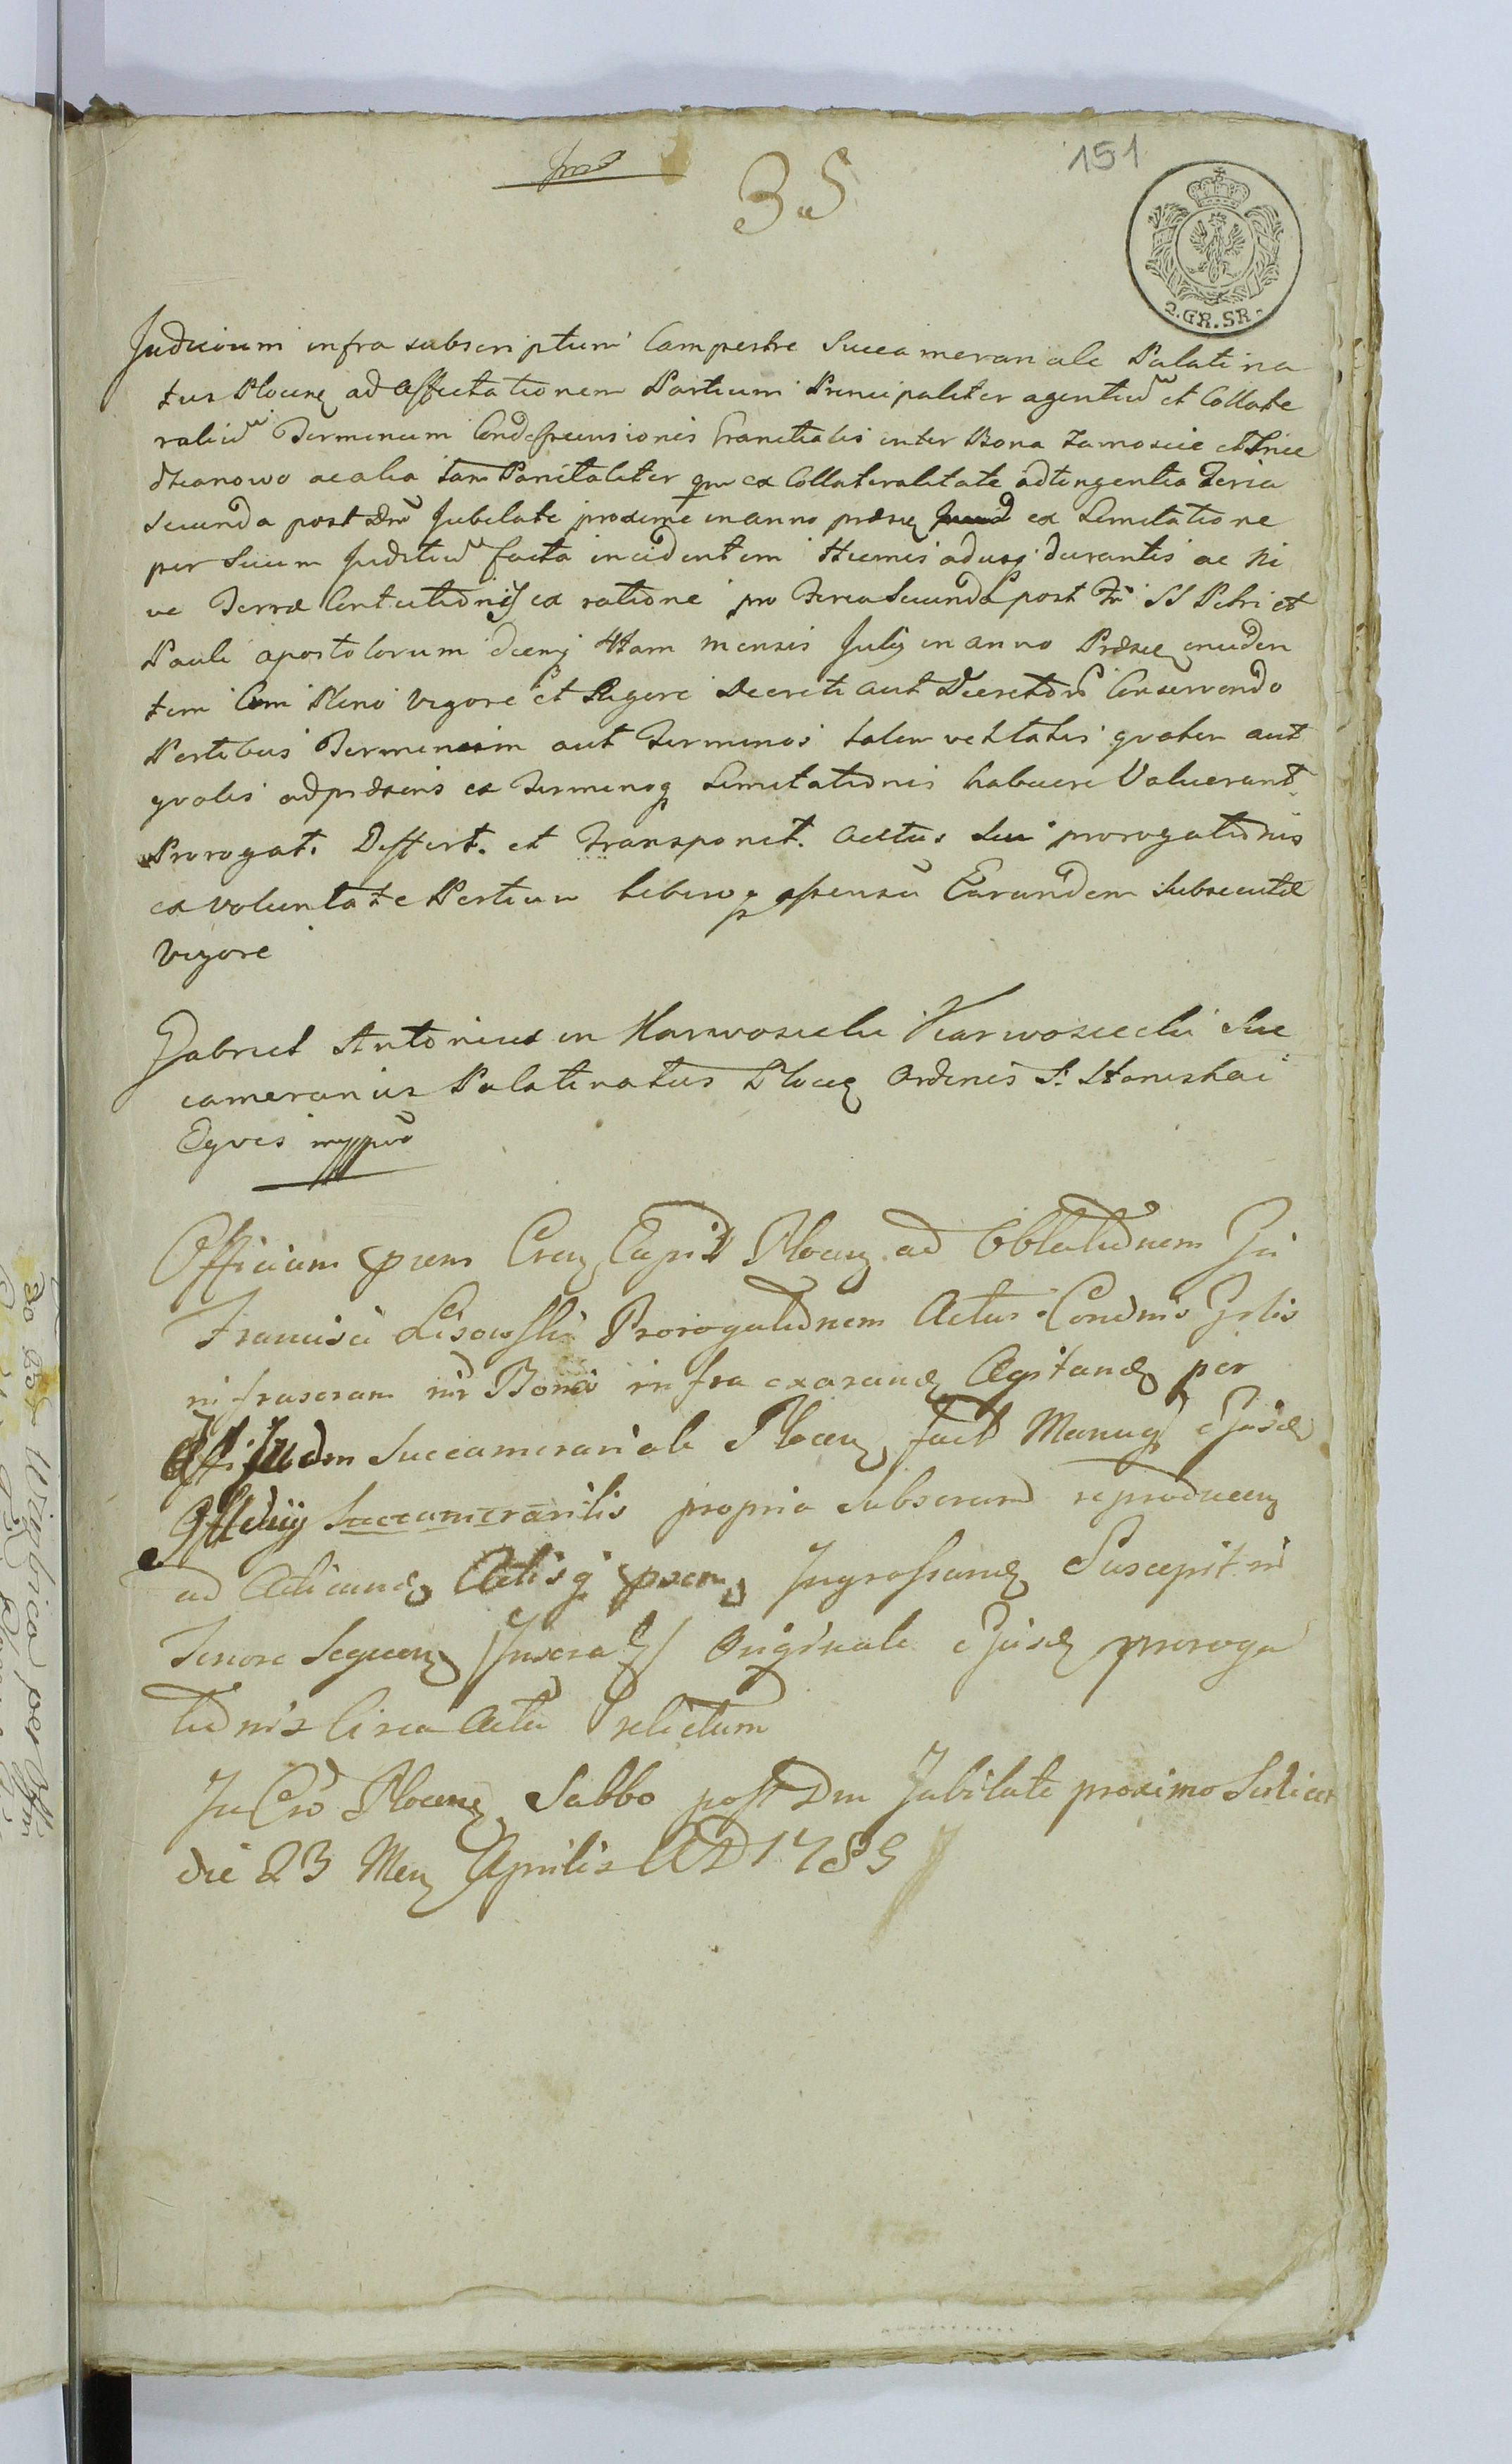 35
151
2.GR.SR.
Judicium infra subscriptum Campestre Succamerariale Palatina
tus Plocen ad affectationem Partium Principaliter agentiu et Collate
raliu Terminum Condescensionis Granitialis inter Bona Zamoscie et
dzianowo ac alia tam Panitaliter qm ex Collateralitate adtingentia Feria
Secunda post Dm Jubilate proxime in anno præsen ex Limitatione
per Suum Juditiu facta incidentem Hiemis adusq durantis ac Ni
ve Terræ ex ratione pro Feria Secunda post Fm SS Petri et
Pauli apostolorum 4tam mensis July in anno Præsen
tem Cum Pleno Vigore et Rigore Decreti aut Decretoru Conservando
Partibus Terminum aut Terminos talem vel tales qualem aut
quales ad præsens ex Terminoq Limitationis habuere Voluerunt
Prorogat. Differt. et Transponit. Actus Sui prorogationis
ex voluntate Partium liberoq assensu Earundem Subsecutæ
vigore
Gabriel Antonius in Karwosieki Karwosiecki Suc
camerarius Palatinatus Plocen Ordinis S. Stanislai
Eques mppria
Officium præsens Cren Capit Plocen ad Oblationem
Francisci Lisowski Prorogationem Actus Condnis Grlis
infrascram intr Bona infra exarand Agitand per
Judm Succamerariale Plocen fact Manuq ejusd
Officiij Succamerarilis propria Subscram reproducen
ad Acticand Actisq præsen Ingrossand Suscepit in
Tenore Sequen Originale ejusd proroga
tionis Circa Acta relictum
In Cro Plocen Sabbo post Dm Jubilate proximo Scilicet
die 23 Men Aprilis AD 1785